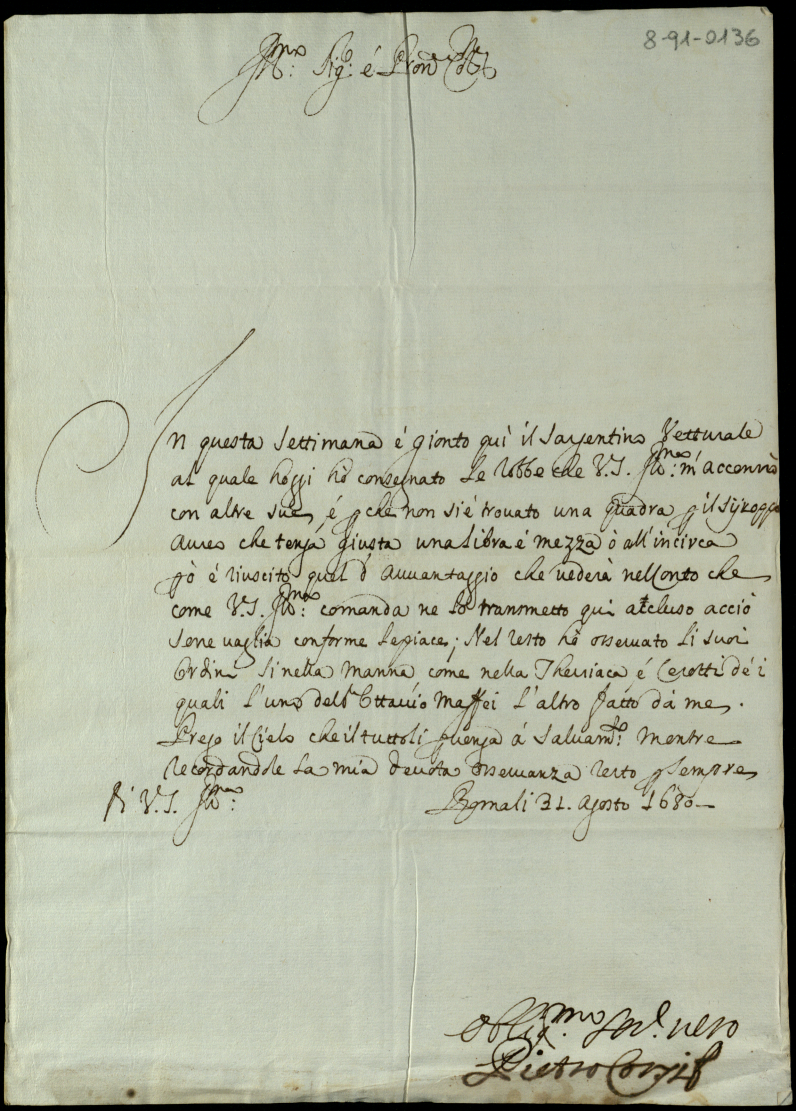 8-91-0136
Ill.mo Sig.r é Pron Col.mo
In questa settimana é gionto qui il Sargentino Vetturale
al quale hoggi hò consegnato le robbe che V.S. Ill.ma m'accennò
con altre sue, é p che non si é trouato una quadra p il syroppo
Aureo che tenga giusta una libra é mezza ò all'incirca
pò é riuscito quel d'auuantaggio che uederà nel Conto che
come V.S. Ill.ma comanda ne lo transmetto qui accluso acciò
sene uaglia conforme le piace; Nel resto hò osseruato li suoi
Ordini si nella Manna, come nella Theriaca é Cerotti dé i
quali l'uno dell Ottauio Maffei l'altro fatto dà me.
Prego il Cielo che il tutto li peruenga á saluam.to mentre
recordandole la mia deuota osseruanza resto p sempre
Di V.S. Ill.ma
Roma li 31. Agosto 1680
Oblig.mo Ser.e uero
Pietro Corsi